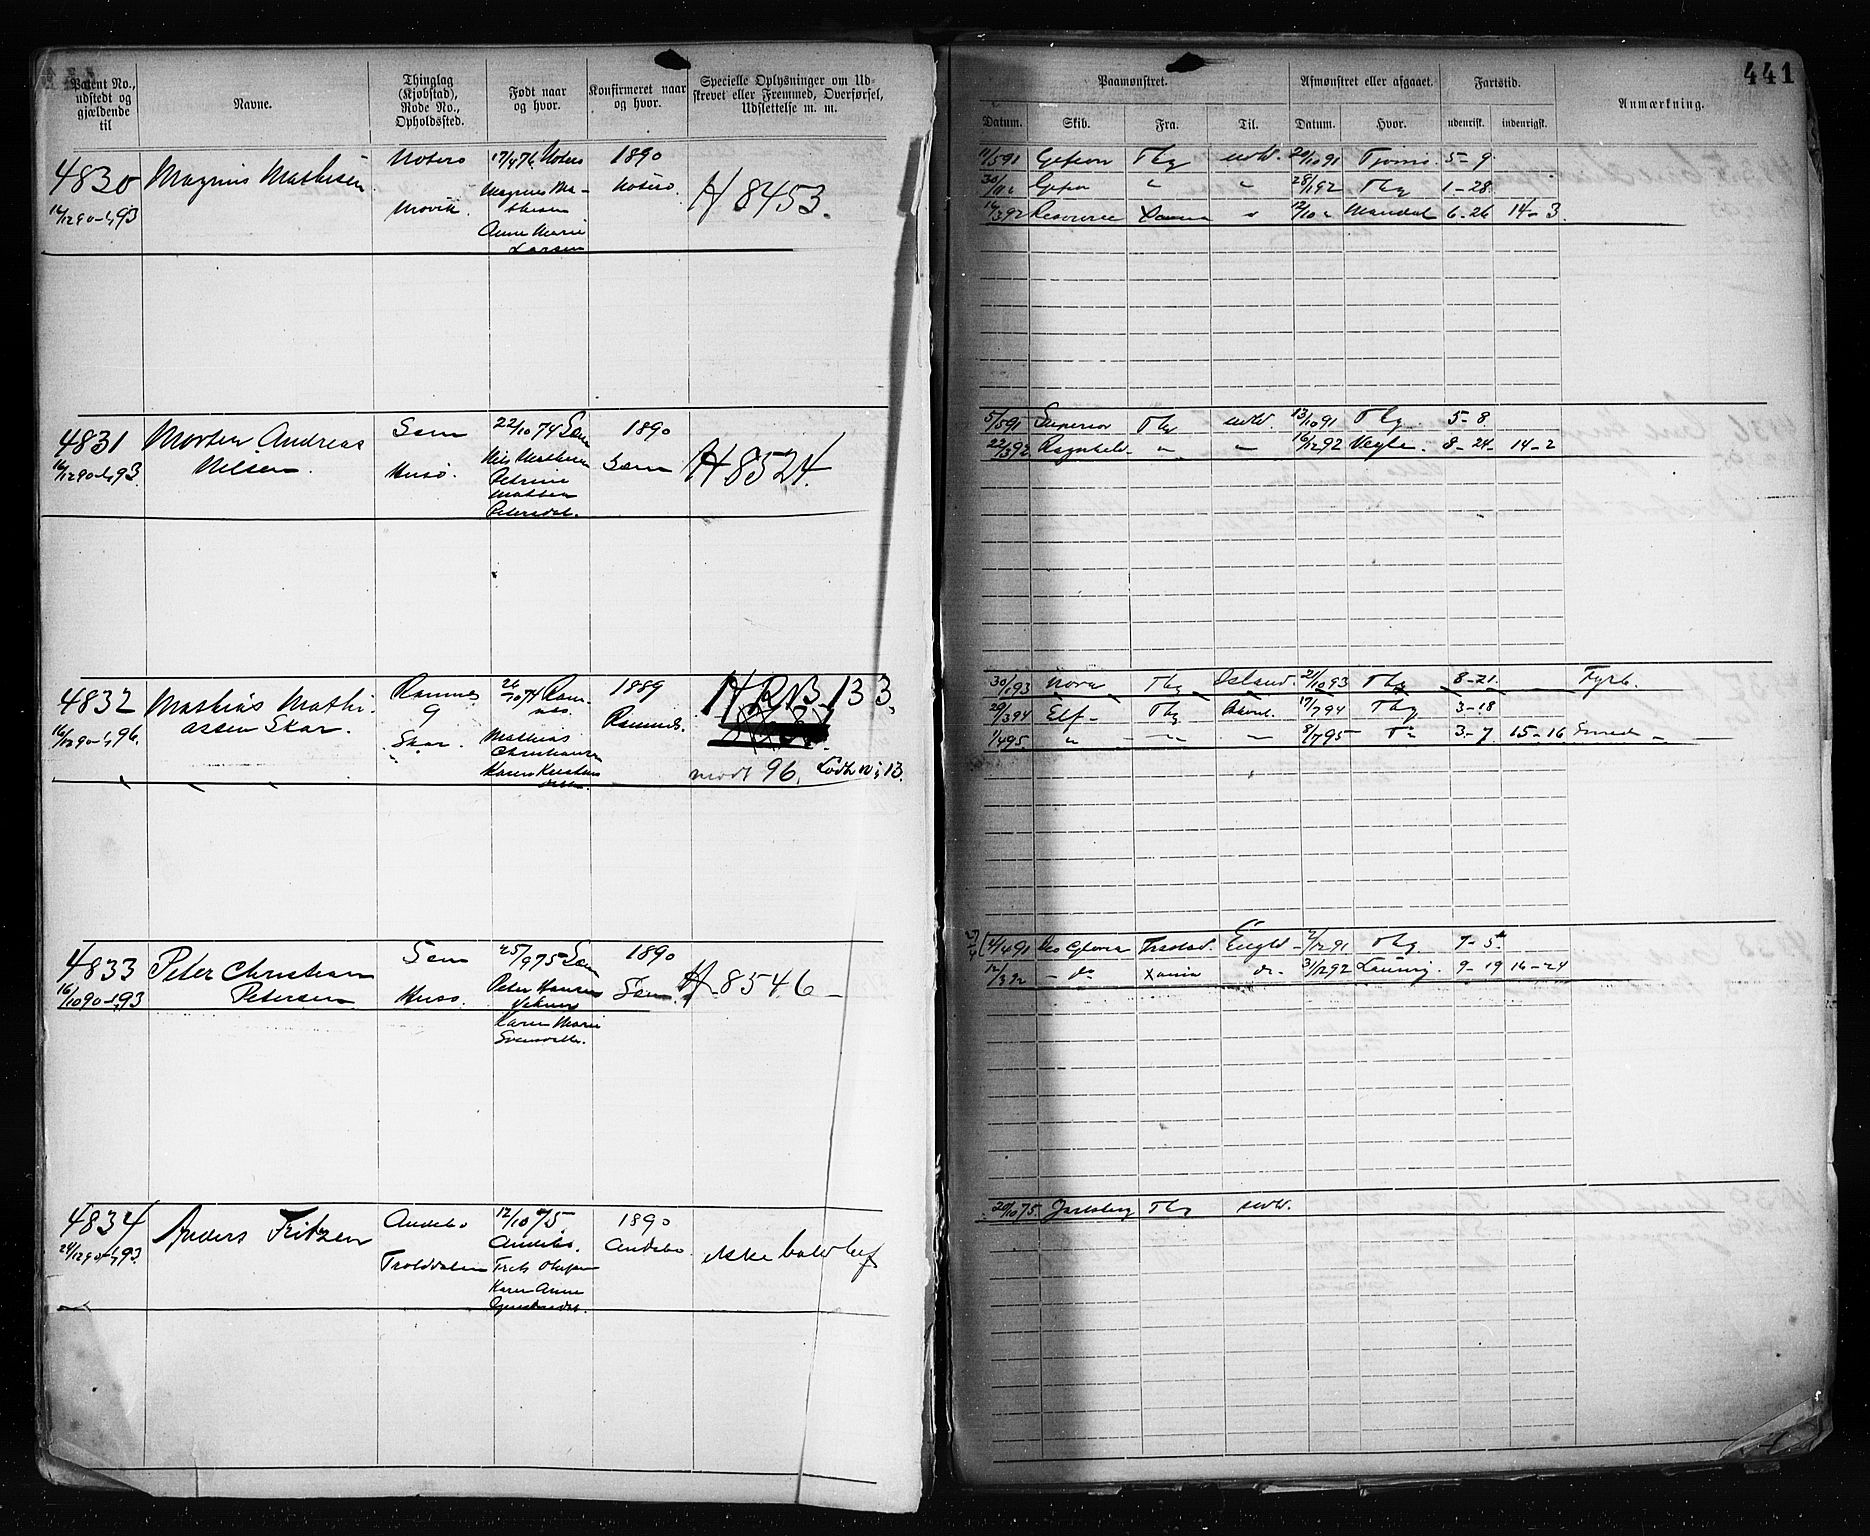 441
Patent No., udstedt og gjældende til
Navne.
Thinglag (Kjøbstad), Rode No., Opholdssted.
Født naar og hvor.
Konfirmeret naar og hvor.
Specielle Oplysninger om Udskrevet eller Fremmed, Overførsel, Udslettelse m. m.
Paamønstret.
Afmønstret eller afgaaet.
Fartstid.
Anmærkning.
Datum.
Skib.
Fra.
Til.
Datum.
Hvor.
udenrigst.
indenrigst.
4830 Magnus Mathisen Nøterø 17/4 76 Nøterø 1890 Nøterø. H 8453.
16/12 90 - 1/4 93
Magnus Mathisen
Anne Marie Larsen
11/5 91 Gefion Tbg udld. 20/10 91 Tjømø 5 - 9
Gefion " " 28/1 92 Tbg 1 - 28
16/3 92 Resource " 12/10 " Mandal 6 - 26 14 - 3
4831 Morten Andreas Nilsen. Sem Husø 22/10 74 Sem 1890 Sem H 8524.
16/12 90 - 1/4 93.
Nils Mathisen
Petrine
Petersdat.
5/5 91 Superior Tbg udld. 13/10 91 Tbg 5 - 8
22/3 92 Ragnhild " " 16/12 92 Vejle. 8 - 24 - 14 - 2
4832 Mathias Mathiassen Skar. Ramnes 9 Skar. 26/10 74 Ramnes. 1889 Ramnes. H RNB 133.
16/12 90 - 1/4 96.
Mathias Christiansen
Karen
modt 96.
30/1 93 Nora Tbg Island. 21/10 93 Tbg 8 - 21. Fyrb.
29/3 94 Elf - Tbg 17/7 94 Tbg 3 - 18
1/4 95 " - " - " 8/7 95 - T" 3 - 7. 15 - 16
4833 Peter Christian Petersen Sem Husø. 25/9 75 Sem 1890 Sem. H 8546 -
16/12 90 - 1/4 93
Peter Hansen
Karen Marie
2/4 91 Gloria Engld - 2/12 91 Tbg 7 - 5
12/3 92 - do do - 31/12 92 Laurvig. 9 - 19 16 - 24
4834 Anders Fritzen Andebo Trolddalen 12/10 75. Andebo. 1890 Andebo ikke
24/12 90 - 1/4 93.
Karen Anne
20/10 75. Jarlsberg Tbg udld.